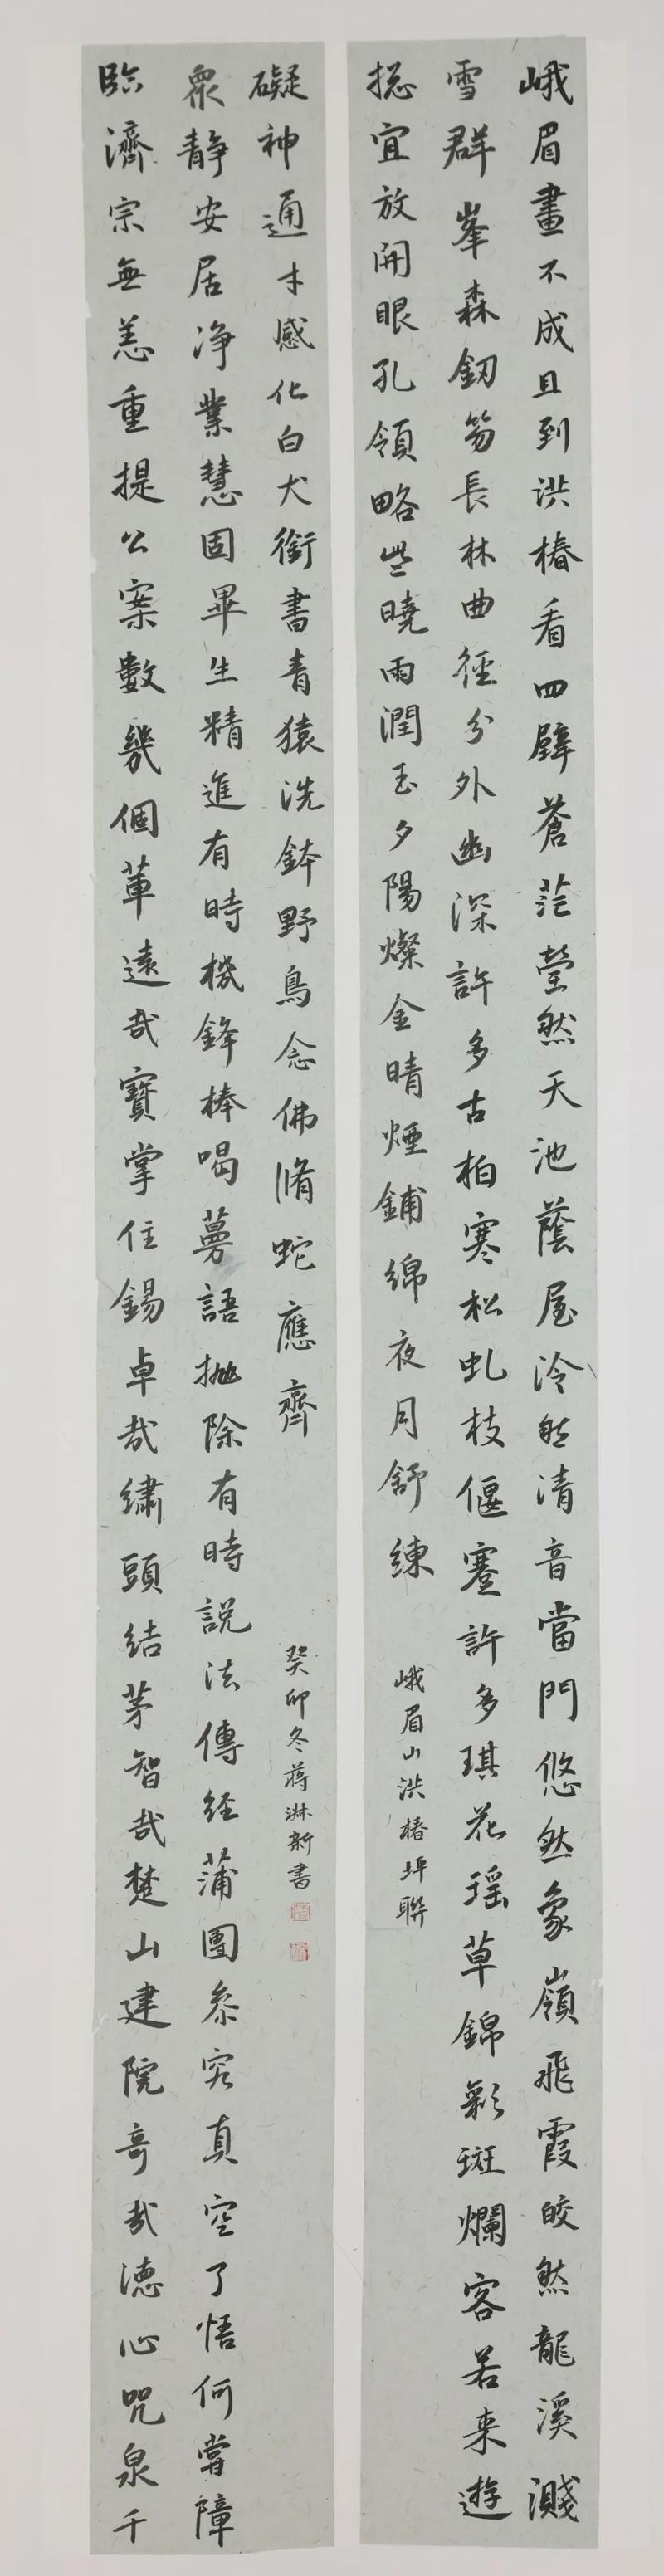 峨眉畫不成且到洪椿看四壁蒼茫瑩然天池蔭屋泠然清音當門悠然象嶺飛霞皎然龍溪濺
雪群峯森釼笏長林曲徑分外幽深許多古柏寒松虬枝偃蹇許多琪花瑶草錦彩斑爛客若来遊
揔宜放開眼孔領略些曉雨潤玉夕陽燦金晴煙鋪綿夜月舒練
峨眉山洪椿坪聯
臨濟宗無恙重提公案數幾個葷遠哉寶掌住錫卓哉繡頭結茅智哉楚山建院奇哉德心咒泉千
衆静安居净業慧固畢生精進有時機鋒棒喝蔓語抛除有時説法傳經蒲團参究真空了悟何嘗障
礙神通才感化白犬銜書青猿洗鉢野鳥念佛脩蛇應齊
癸卯冬蒋淋新書